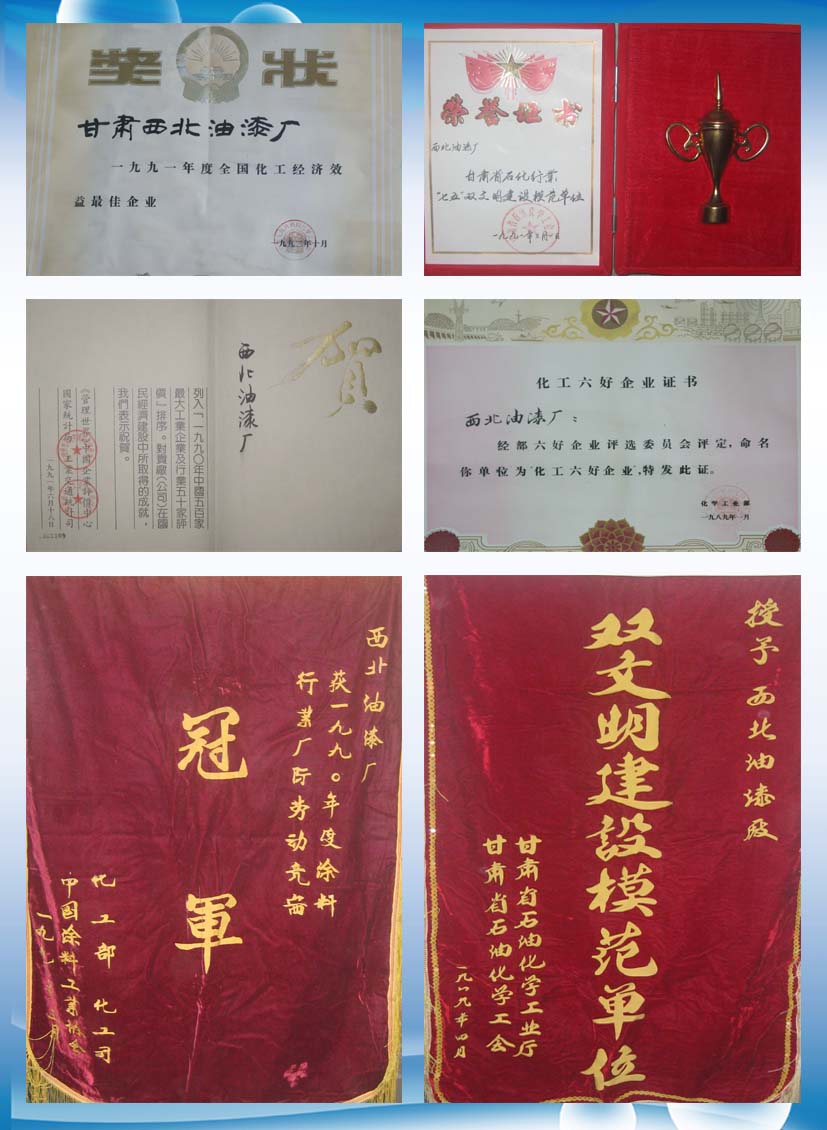 奖状
甘肃西北油漆厂
一九九一年度全国化工经济效
益最佳企业
一九九二年十月
荣誉证书
西北油漆厂
甘肃省石化行业
“七五”双文明建设模范单位
一九九一年三月一日
賀
西北油漆厂
列入「一九九〇年中國五百家
最大工業企業及行業五十家評
價」排序。對貴廠(公司)在國
民經濟建設中所取得的成就，
我們表示祝賀。
《管理世界》中國企業評價中心
國家統計局工業交通統計司
一九九一年六月十八日
化工六好企业证书
西北油漆厂：
经部六好企业评选委员会评定，命名
你单位为“化工六好企业”，特发此证。
化学工业部
一九八九年一月
西北油漆厂
获一九九〇年度涂料
行业厂际劳动竞赛
冠軍
化工部 化工司
中国涂料工业协会
授予 西北油漆厰
双文明建設模范单位
甘肃省石油化学工业厅
甘肃省石油化学工会
一九八九年四月